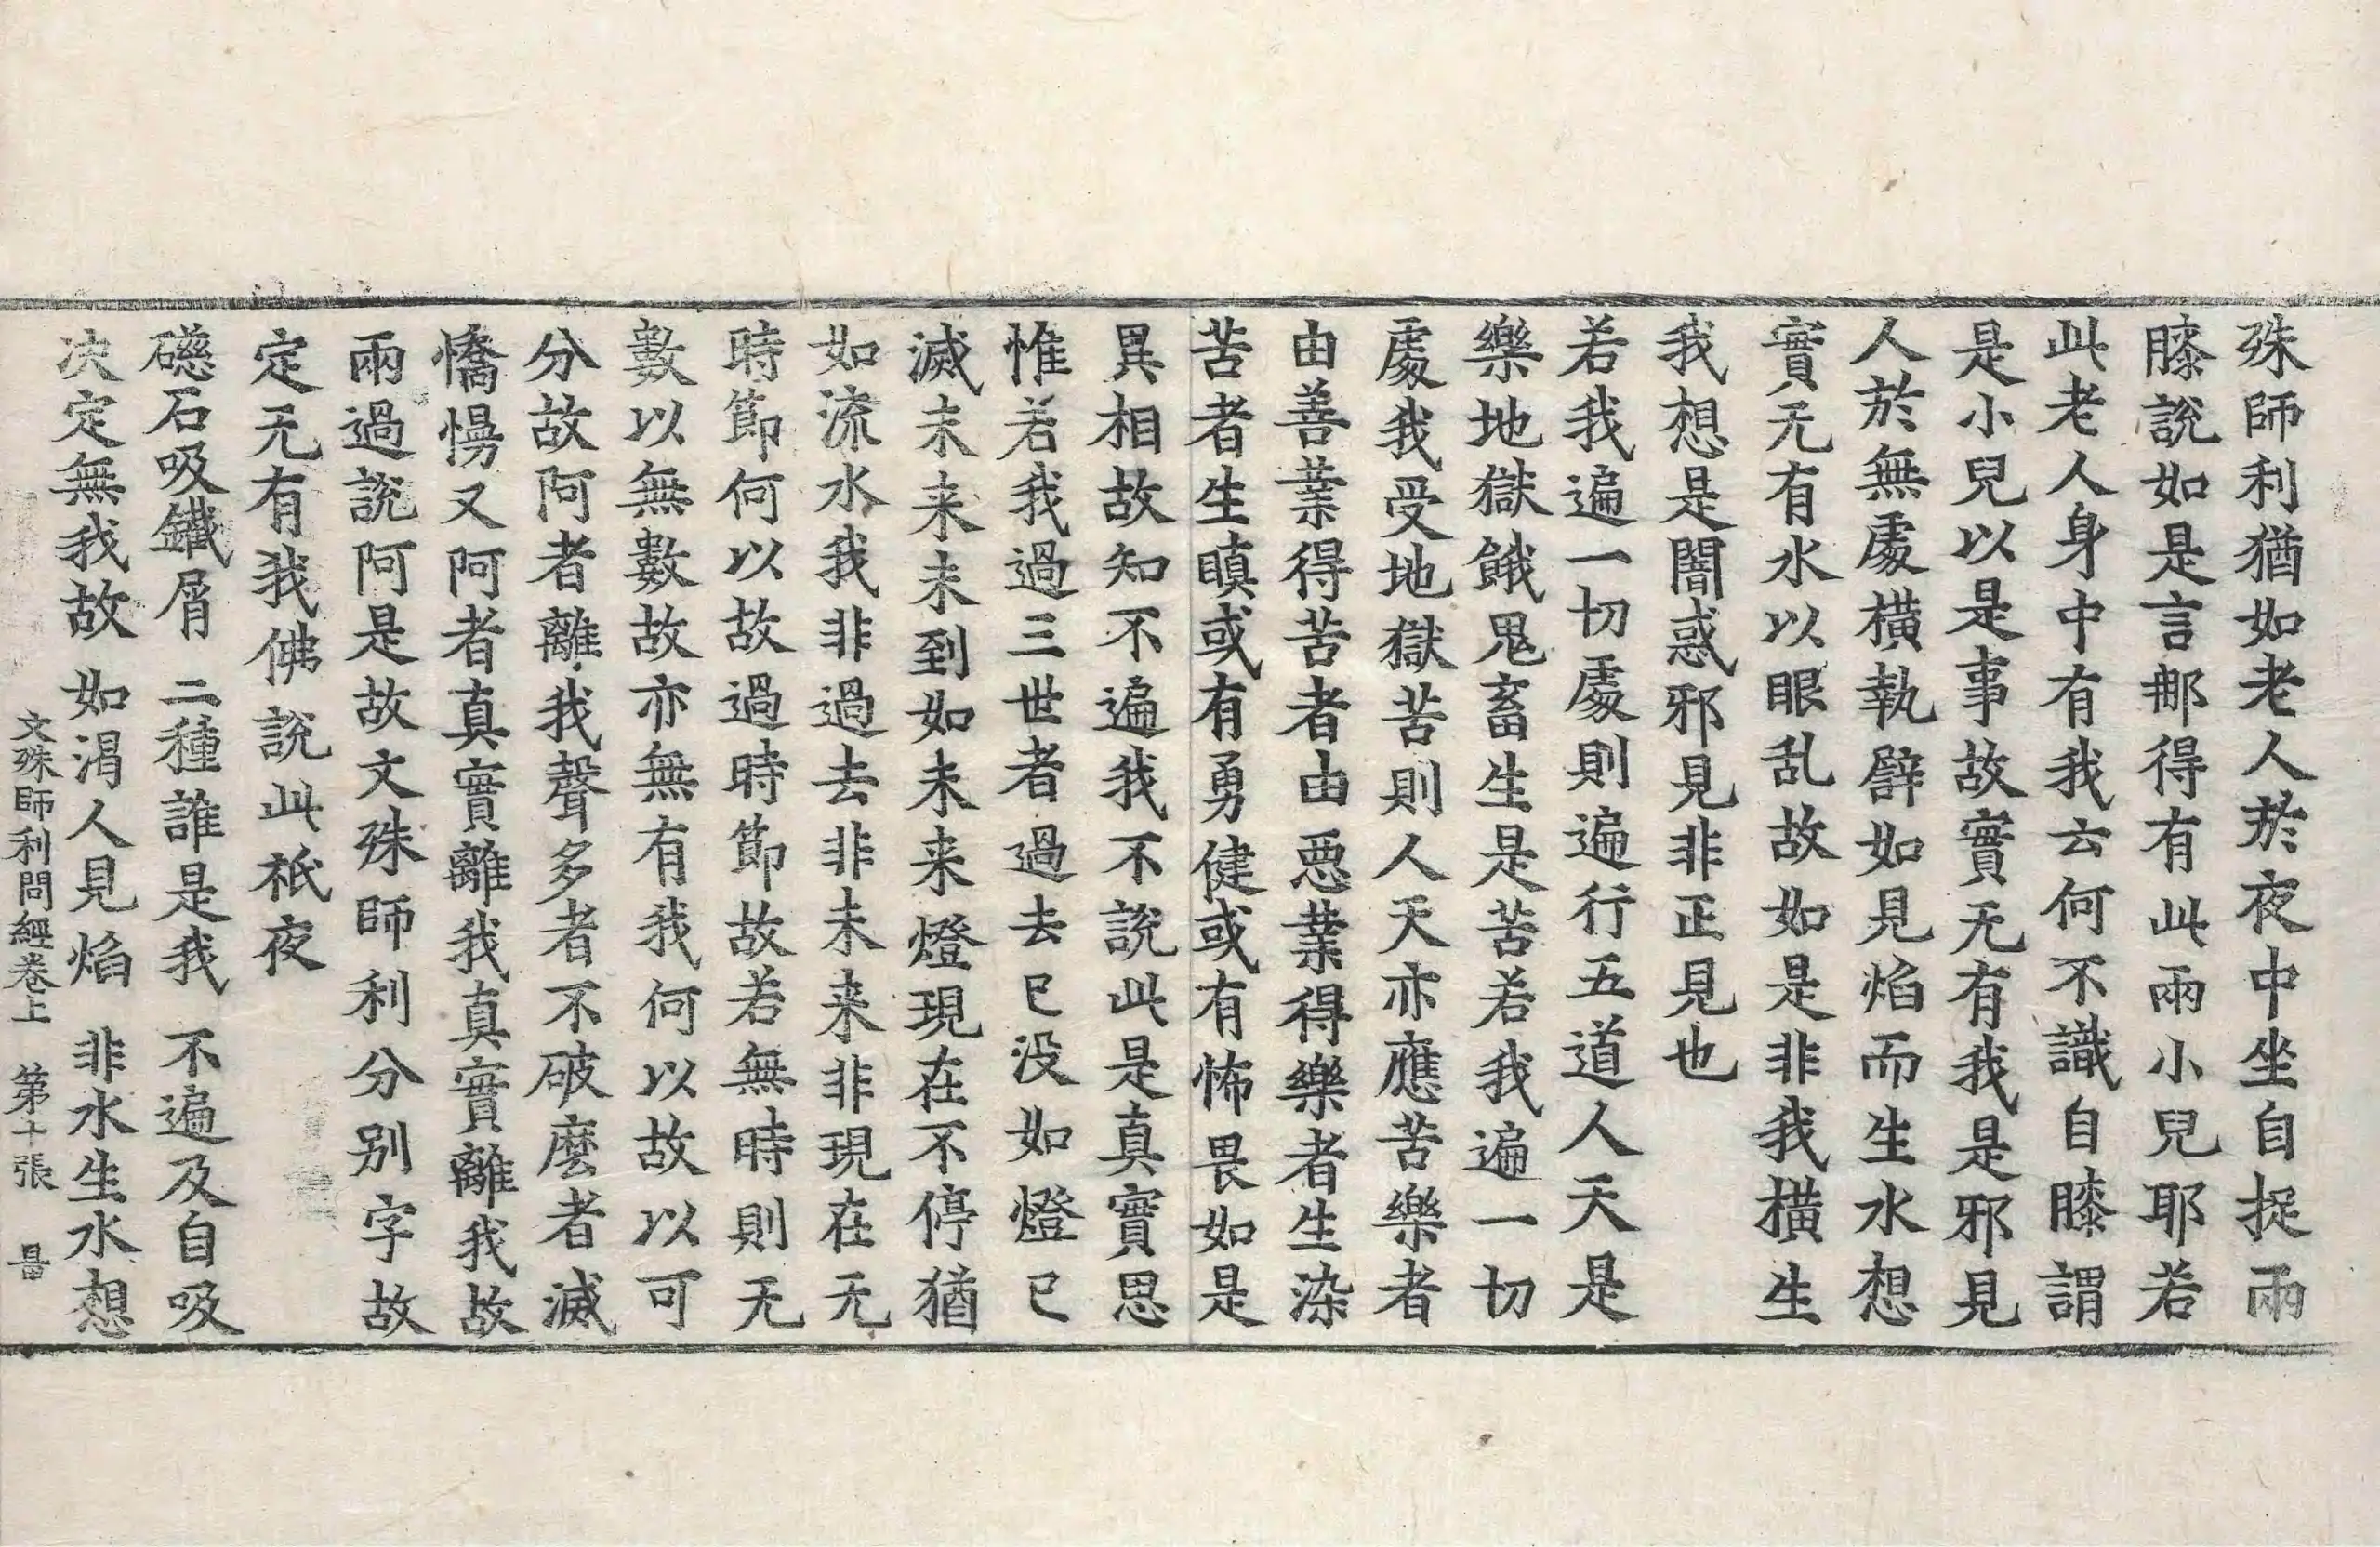 殊師利猶如老人於夜中坐自捉兩
膝說如是言那得有此兩小兒耶若
此老人身中有我云何不識自膝謂
是小兒以是事故實无有我是邪見
人於無處橫執譬如見焰而生水想
實无有水以眼乱故如是非我橫生
我想是闇惑邪見非正見也
若我遍一切處則遍行五道人天是
樂地獄餓鬼畜生是苦若我遍一切
處我受地獄苦則人天亦應苦樂者
由善業得苦者由惡業得樂者生染
苦者生瞋或有勇健或有怖畏如是
異相故知不遍我不說此是真實思
惟若我過三世者過去已没如燈已
滅未来未到如未来燈現在不停猶
如流水我非過去非未来非現在无
時節何以故過時節故若無時則无
數以無數故亦無有我何以故以可
分故阿者離我聲多者不破麼者滅
憍慢又阿者真實離我真實離我故
兩過說阿是故文殊師利分別字故
定无有我佛說此祇夜
礠石吸鐵屑 二種誰是我 不遍及自吸
决定無我故 如渴人見焰 非水生水想
文殊師利問經卷上 第十張 量